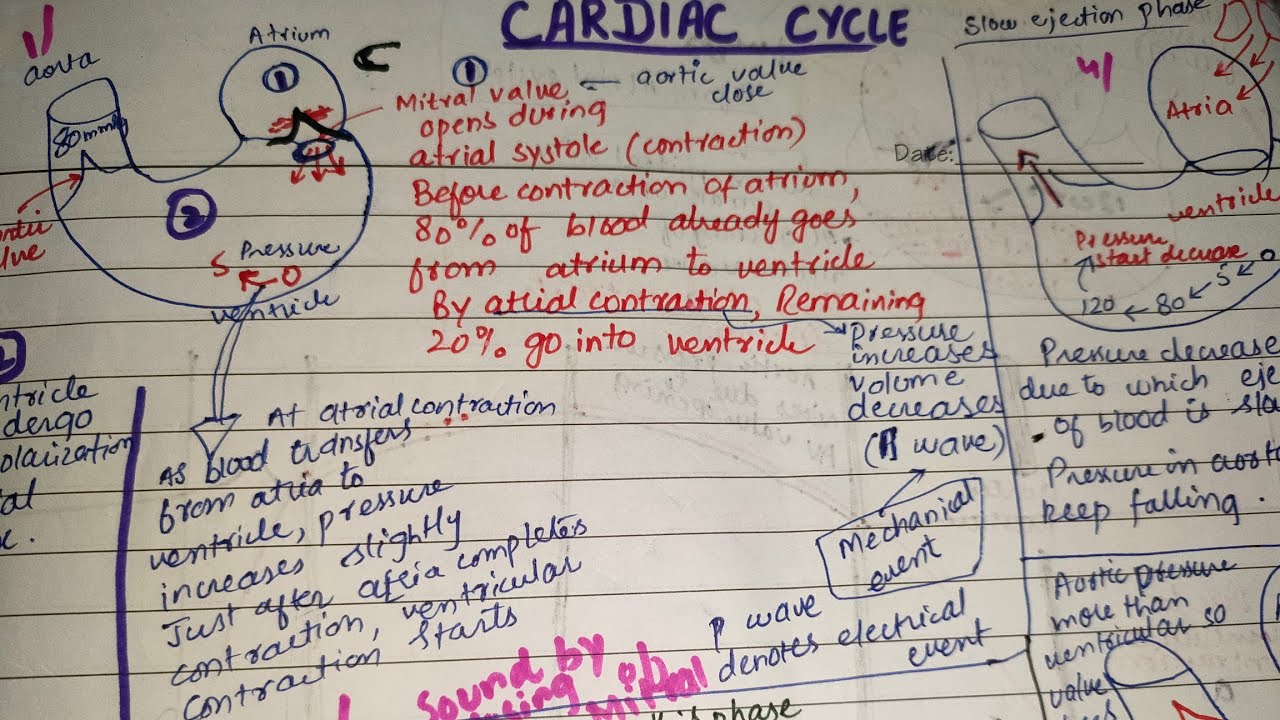 CARDIAC CYCLE
1/
aorta
80mmHg
Atrium
1
2
Pressure
5 ← 0
ventricle
C
1
Mitral value ← aortic value
close
opens during
atrial systole (contraction)
Before contraction of atrium,
80% of blood already goes
from atrium to ventricle
By atrial contraction, Remaining
20% go into ventricle
Pressure
increases
volume
decreases
(
wave)
Mechanical
event
P wave
denotes electrical
event
At atrial contraction
As blood transfers
from atria to
ventricle, pressure
increases slightly
Just after atria completes
contraction, ventricular
contraction starts
sound by
phase
Slow ejection phase
4/
Atria
Date:
ventricle
Pressure
start decrease
120 ← 80 ← 5 ← 0
Pressure decrease
due to which
of blood is
Pressure in
keep falling.
Aortic pressure
more than
ventricular so
value